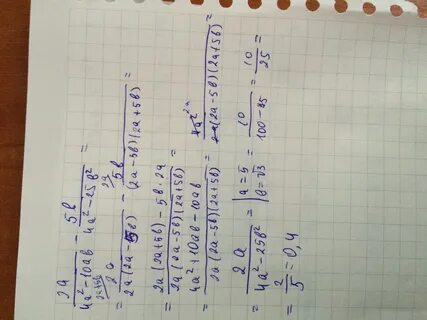 2a/(4a² - 10ab) - 5b/(4a² - 25b²) =
= 2a^(2a+5b)/(2a(2a - 5b)) - 5b^(2a)/((2a - 5b)(2a + 5b)) =
= (2a(2a + 5b) - 5b · 2a)/(2a(2a - 5b)(2a + 5b)) =
= (4a² + 10ab - 10ab)/(2a(2a - 5b)(2a + 5b)) = 4a² 2a/(2a(2a - 5b)(2a + 5b)) =
= 2a/(4a² - 25b²) = | a = 5 b = √3 | = 10/(100 - 75) = 10/25 =
= 2/5 = 0,4